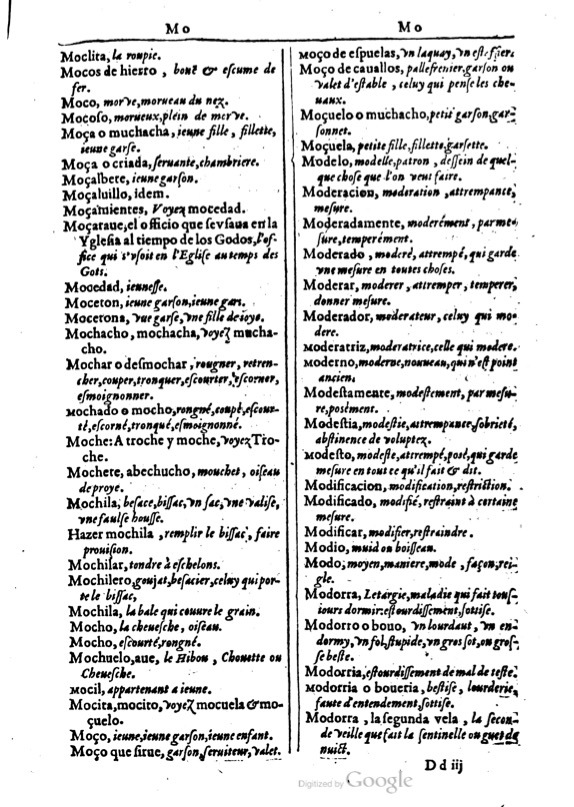 Mo
Moclita, la roupie.
Mocos de hierro, bouë & escume de
fer.
Moco, morve, morueau du nez.
Mocoso, morueux, plein de morve.
Moça o muchacha, ieune fille, fillette,
ieune garse.
Moça o criada, seruante, chambriere.
Moçalbete, ieune garson.
Moçaluillo, idem.
Moçamientes, Voyez mocedad.
Moçaraue, el officio que se vsaua en la
Yglesia al tiempo de los Godos, l'of-
fice qui s'vsoit en l'Eglise au temps des
Gots.
Mocedad, ieunesse.
Moceton, ieune garson, ieune gars.
Mocetona, vne garse, vne fille de ioye.
Mochacho, mochacha, voyez mucha-
cho.
Mochar o desmochar, rougner, retren-
cher, couper, tronquer, escourter, escorner,
esmoignonner.
mochado o mocho, rongné, coupé, escour-
té, escorné, tronqué, esmoignonné.
Moche: A troche y moche, voyez Tro-
che.
Mochete, abechucho, mouchet, oiseau
de proye.
Mochila, besace, bissac, vn sac, vne valise,
vne faulse housse.
Hazer mochila, remplir le bissac, faire
prouision.
Mochilar, tondre à eschelons.
Mochilero, goujat, besacier, celuy qui por-
te le bissac,
Mochila, la bale qui couure le grain.
Mocho, la cheuesche, oiseau.
Mocho, escourté, rongné.
Mochuelo, aue, le Hibou, Chouette ou
Cheuesche.
mocil, appartenant a ieune.
Mocita, mocito, voyez mocuela & mo-
çuelo.
Moço, ieune, ieune garson, ieune enfant.
Moço que sirue, garson, seruiteur, valet.
Mo
Moço de espuelas, vn laquay, vn estaffier.
Moço de cauallos, pallefrenier, garson ou
valet d'estable, celuy qui pense les che-
uaux.
Moçuelo o muchacho, petit garson, gar-
sonnet.
Moçuela, petite fille, fillette, garsette.
Modelo, modelle, patron, dessein de quel-
que chose que l'on veut faire.
Moderacion, moderation, attrempance,
mesure.
Moderadamente, moderément, par me-
sure, temperément.
Moderado, moderé, attrempé, qui garde
vne mesure en toutes choses.
Moderar, moderer, attremper, temperer,
donner mesure.
Moderador, moderateur, celuy qui mo-
dere.
Moderatriz, moderatrice, celle qui modere.
moderno, moderne, nouueau, qui n'est point
ancien.
Modestamente, modestement, par mesu-
re, posément.
Modestia, modestie, attrempance, sobrieté,
abstinence de voluptez.
modesto, modeste, attrempé, posé, qui garde
mesure en tout ce qu'il fait & dit.
Modificacion, modification, restriction.
Modificado, modifié, restraint à certaine
mesure.
Modificar, modifier, restraindre.
Modio, muid ou boisseau.
Modo, moyen, maniere, mode, façon, rei-
gle.
Modorra, Letargie, maladie qui fait tous-
iours dormir: estourdissement, sottise.
Modorro o bouo, vn lourdaut, vn en-
dormy, vn fol, stupide, vn gros sot, ou gros-
se beste.
Modorria, estourdissement de mal de teste.
modorria o boueria, bestise, lourderie,
faute d'entendement, sottise.
Modorra, la segunda vela, la secon-
de veille que fait la sentinelle ou guet de
nuict.
D d iij
Digitized by Google